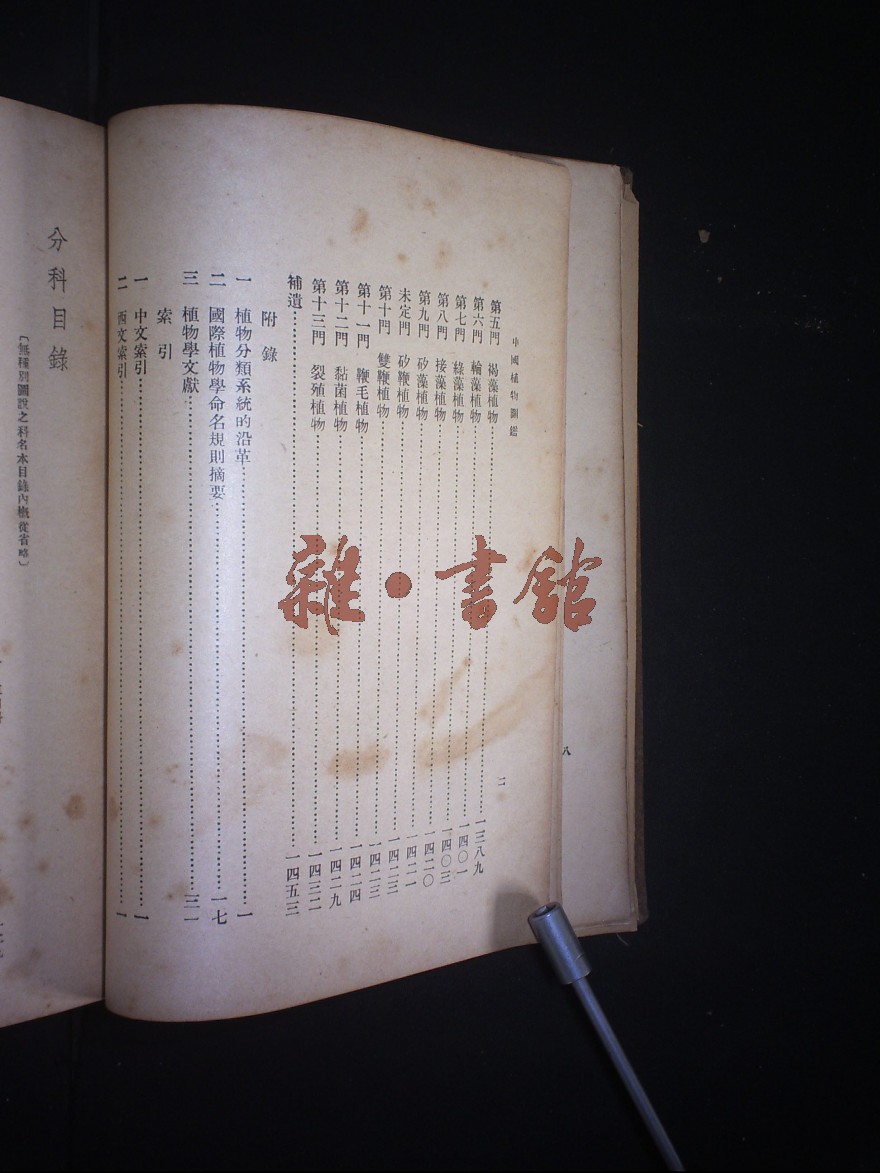 八
中國植物圖鑑
二
第五門 褐藻植物……一三八九
第六門 輪藻植物……一四〇一
第七門 綠藻植物……一四〇三
第八門 接藻植物……一四二〇
第九門 矽藻植物……一四二一
未定門 矽鞭植物……一四二三
第十門 雙鞭植物……一四二三
第十一門 鞭毛植物……一四二四
第十二門 黏菌植物……一四二九
第十三門 裂殖植物……一四三二
補遺……一四五三
附錄
一 植物分類系統的沿革……一
二 國際植物學命名規則摘要……一七
三 植物學文獻……三一
索引
一 中文索引……一
二 西文索引……一
分科目錄
〔無種別圖說之科名本目錄內概從省略〕
雜·書館